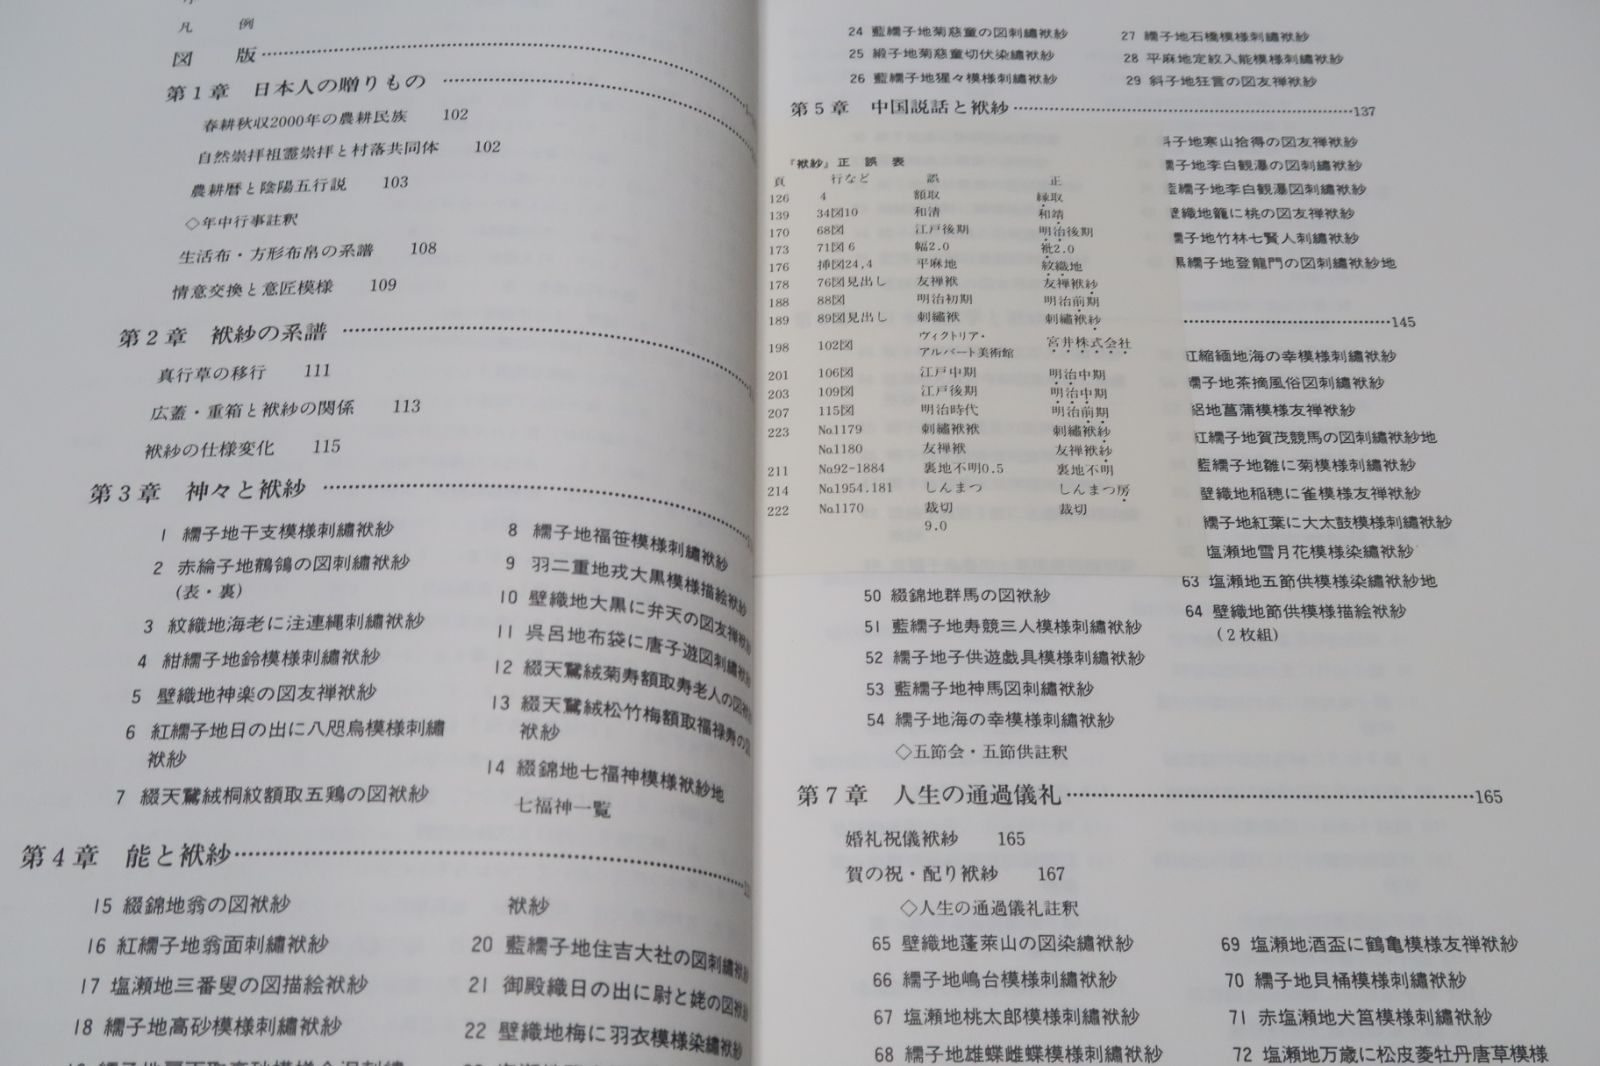 凡例
図版
第1章 日本人の贈りもの
春耕秋収2000年の農耕民族 102
自然崇拝祖霊崇拝と村落共同体 102
農耕暦と陰陽五行説 103
◇年中行事註釈
生活布・方形布帛の系譜 108
情意交換と意匠模様 109
第2章 袱紗の系譜
真行草の移行 111
広蓋・重箱と袱紗の関係 113
袱紗の仕様変化 115
第3章 神々と袱紗
1 繻子地干支模様刺繡袱紗
2 赤綸子地鶺鴒の図刺繡袱紗
(表・裏)
3 紋織地海老に注連縄刺繡袱紗
4 紺繻子地鈴模様刺繡袱紗
5 壁織地神楽の図友禅袱紗
6 紅繻子地日の出に八咫烏模様刺繡
袱紗
7 綴天鵞絨桐紋額取五鶏の図袱紗
8 繻子地福笹模様刺繡袱紗
9 羽二重地戎大黒模様描絵袱紗
10 壁織地大黒に弁天の図友禅袱紗
11 呉呂地布袋に唐子遊図刺繡袱紗
12 綴天鵞絨菊寿額取寿老人の図袱紗
13 綴天鵞絨松竹梅額取福禄寿の図
袱紗
14 綴錦地七福神模様袱紗地
七福神一覧
第4章 能と袱紗
15 綴錦地翁の図袱紗
16 紅繻子地翁面刺繡袱紗
17 塩瀬地三番叟の図描絵袱紗
18 繻子地高砂模様刺繡袱紗
袱紗
20 藍繻子地住吉大社の図刺繡袱紗
21 御殿織日の出に尉と姥の図袱紗
22 壁織地梅に羽衣模様染繡袱紗
24 藍繻子地菊慈童の図刺繡袱紗
25 緞子地菊慈童切伏染繡袱紗
26 藍繻子地猩々模様刺繡袱紗
27 繻子地石橋模様刺繡袱紗
28 平麻地定紋入能模様刺繡袱紗
29 斜子地狂言の図友禅袱紗
第5章 中国説話と袱紗 137
斜子地寒山拾得の図友禅袱紗
繻子地李白観瀑の図刺繡袱紗
藍繻子地李白観瀑図刺繡袱紗
壁織地籠に桃の図友禅袱紗
繻子地竹林七賢人刺繡袱紗
黒繻子地登龍門の図刺繡袱紗地
『袱紗』正誤表
頁 行など 誤 正
126 4 額取 縁取
139 34図10 和清 和靖
170 68図 江戸後期 明治後期
173 71図6 幅2.0 袘2.0
176 挿図24,4 平麻地 紋織地
178 76図見出し 友禅袱 友禅袱紗
188 88図 明治初期 明治前期
189 89図見出し 刺繡袱 刺繡袱紗
198 102図 ヴィクトリア・アルバート美術館 宮井株式会社
201 106図 江戸中期 明治中期
203 109図 江戸後期 明治中期
207 115図 明治時代 明治前期
223 No.1179 刺繡袱袱 刺繡袱紗
No.1180 友禅袱 友禅袱紗
211 No.92-1884 裏地不明0.5 裏地不明
214 No.1954.181 しんまつ しんまつ房
222 No.1170 裁切 裁切
9.0
145
紅縮緬地海の幸模様刺繡袱紗
繻子地茶摘風俗図刺繡袱紗
絽地菖蒲模様友禅袱紗
紅繻子地賀茂競馬の図刺繡袱紗地
藍繻子地雛に菊模様刺繡袱紗
壁織地稲穂に雀模様友禅袱紗
繻子地紅葉に大太鼓模様刺繡袱紗
塩瀬地雪月花模様染繡袱紗
63 塩瀬地五節供模様染繡袱紗地
64 壁織地節供模様描絵袱紗
(2枚組)
50 綴錦地群馬の図袱紗
51 藍繻子地寿競三人模様刺繡袱紗
52 繻子地子供遊戯具模様刺繡袱紗
53 藍繻子地神馬図刺繡袱紗
54 繻子地海の幸模様刺繡袱紗
◇五節会・五節供註釈
第7章 人生の通過儀礼 165
婚礼祝儀袱紗 165
賀の祝・配り袱紗 167
◇人生の通過儀礼註釈
65 壁織地蓬萊山の図染繡袱紗
66 繻子地嶋台模様刺繡袱紗
67 塩瀬地桃太郎模様刺繡袱紗
68 繻子地雄蝶雌蝶模様刺繡袱紗
69 塩瀬地酒盃に鶴亀模様友禅袱紗
70 繻子地貝桶模様刺繡袱紗
71 赤塩瀬地犬筥模様刺繡袱紗
72 塩瀬地万歳に松皮菱牡丹唐草模様